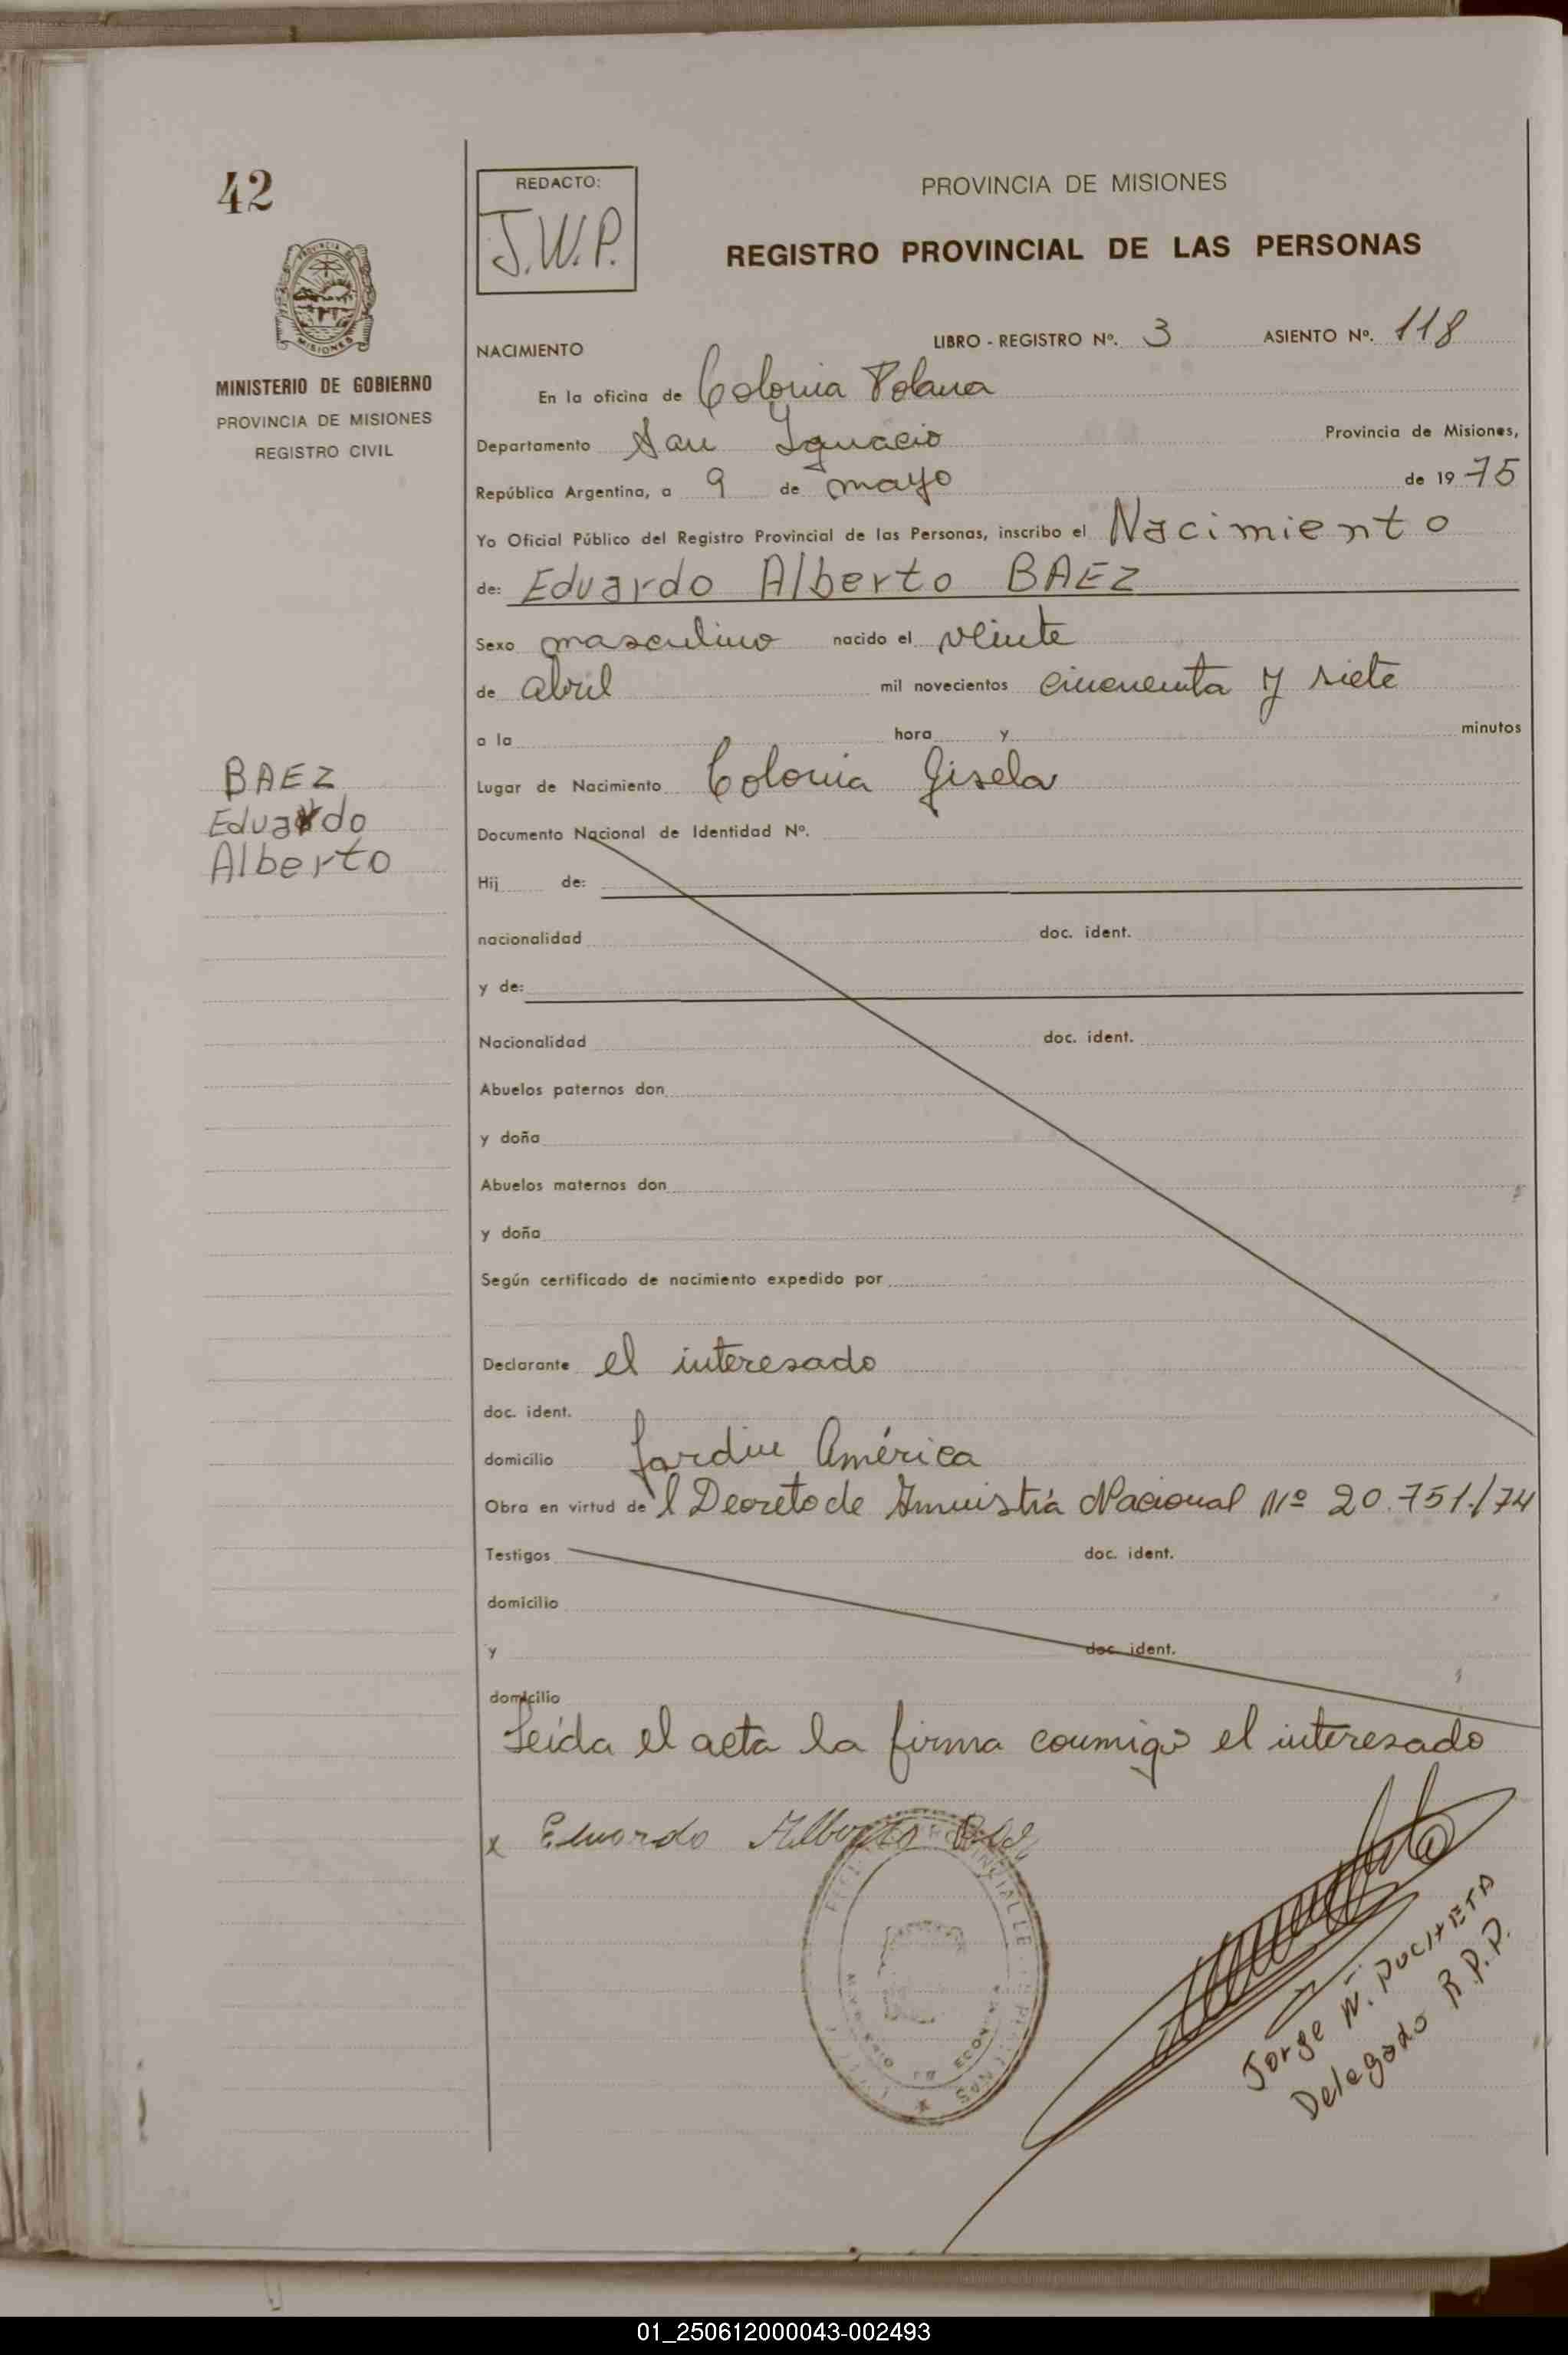 42
REDACTO:
J.W.P.
PROVINCIA DE MISIONES
REGISTRO PROVINCIAL DE LAS PERSONAS
PROVINCIA DE
MISIONES
MINISTERIO DE GOBIERNO
PROVINCIA DE MISIONES
REGISTRO CIVIL
NACIMIENTO
LIBRO - REGISTRO Nº. 3 ASIENTO Nº. 118
En la oficina de Colonia Polana
Departamento San Ignacio Provincia de Misiones,
República Argentina, a 9 de mayo de 1975
Yo Oficial Público del Registro Provincial de las Personas, inscribo el Nacimiento
de: Eduardo Alberto BAEZ
Sexo masculino nacido el veinte
de abril mil novecientos cincuenta y siete
a la hora y minutos
Lugar de Nacimiento Colonia Gisela
BAEZ
Eduardo
Alberto
Documento Nacional de Identidad Nº.
Hij de:
nacionalidad doc. ident.
y de:
Nacionalidad doc. ident.
Abuelos paternos don
y doña
Abuelos maternos don
y doña
Según certificado de nacimiento expedido por
Declarante el interesado
doc. ident.
domicilio Jardin América
Obra en virtud de l Decreto de Amnistía Nacional Nº 20.751/74
Testigos doc. ident.
domicilio
y doc. ident.
domicilio
Leída el acta la firma conmigo el interesado
x Eduardo Alberto Baez
Jorge W.
Delegado R.P.P.
01_250612000043-002493